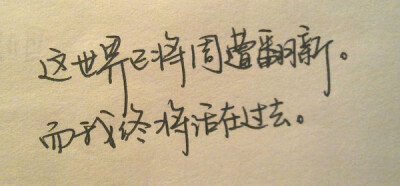 这世界已将周遭翻新。
而我终将活在过去。